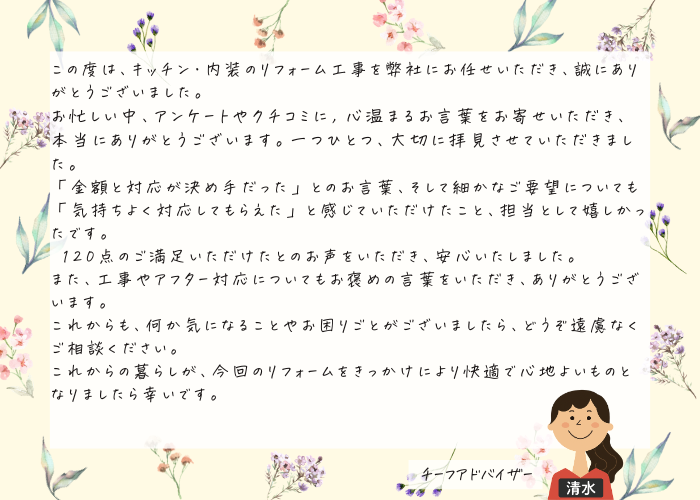 この度は、キッチン・内装のリフォーム工事を弊社にお任せいただき、誠にあり
がとうございました。
お忙しい中、アンケートやクチコミに，心温まるお言葉をお寄せいただき、
本当にありがとうございます。一つひとつ、大切に拝見させていただきまし
た。
「金額と対応が決め手だった」とのお言葉、そして細かなご要望についても
「気持ちよく対応してもらえた」と感じていただけたこと、担当として嬉しかっ
たです。
120点のご満足いただけたとのお声をいただき、安心いたしました。
また、工事やアフター対応についてもお褒めの言葉をいただき、ありがとうござ
います。
これからも、何か気になることやお困りごとがございましたら、どうぞ遠慮なく
ご相談ください。
これからの暮らしが、今回のリフォームをきっかけにより快適で心地よいものと
なりましたら幸いです。
チーフアドバイザー
清水